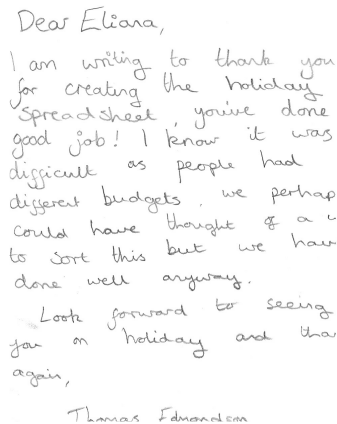 Dear Eliana,
I am writing to thank you
for creating the holiday
spreadsheet, you've done
good job! I know it was
difficult as people had
different budgets. we perhap
could have thought of a
to sort this but we hav
done well anyway.
Look forward to seeing
you on holiday and tha
again,
Thomas Edmondson